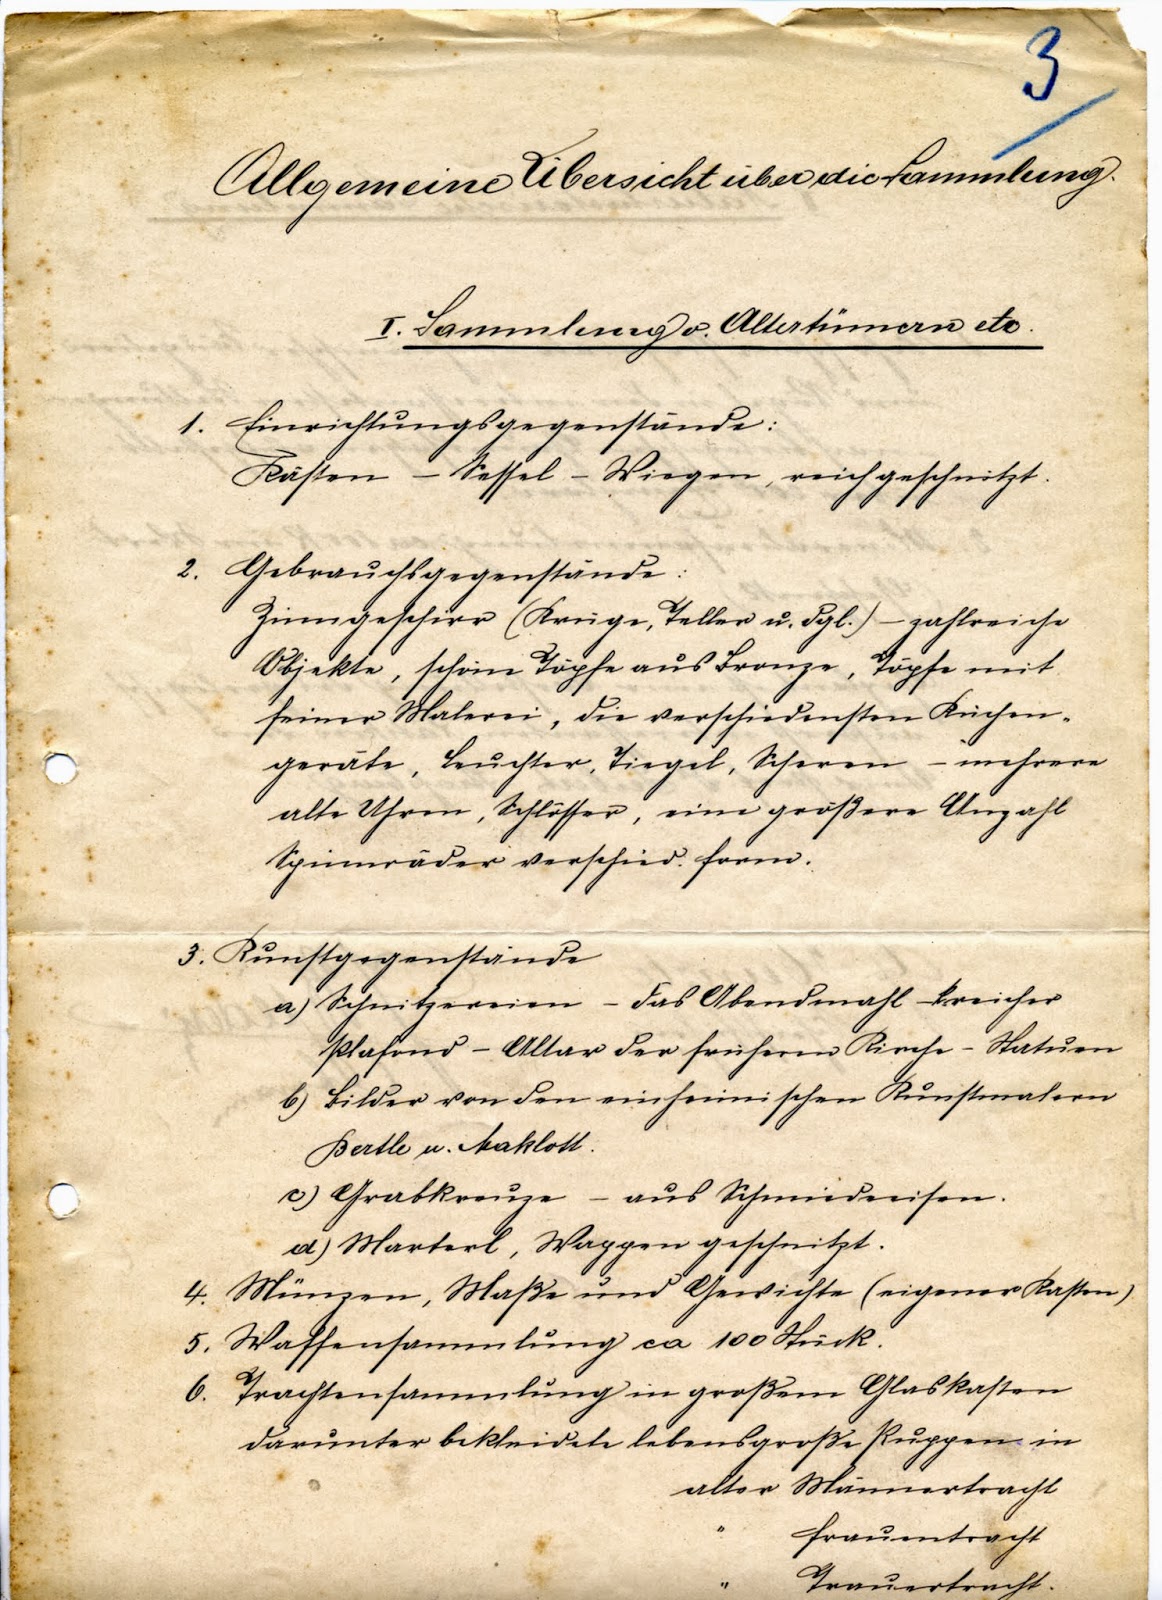 3
Allgemeine Übersicht über die Sammlung.
I. Sammlung v. Altertümern etc.
1. Einrichtungsgegenstände:
Kästen – Sessel – Wiegen, reich geschnitzt.
2. Gebrauchsgegenstände:
Zinngeschirr (Krüge, Teller u. dgl.) – zahlreiche
Objekte, schöne Töpfe aus Bronze, Töpfe mit
feiner Malerei, die verschiedensten Küchen-
geräte, Leuchter, Tiegel, Scheren – mehrere
alte Uhren, Schlösser, eine größere Anzahl
Spinnräder verschied. Form.
3. Kunstgegenstände
a) Schnitzereien – das Abendmahl – reicher
Plafond – Altar der früheren Kirche – Statuen
b) Bilder von den einheimischen Kunstmalern
Bertle u. Maklott.
c) Grabkreuze – aus Schmiedeeisen.
d) Marterl, Wappen geschnitzt.
4. Münzen, Maße und Gewichte (eigener Kasten)
5. Waffensammlung ca 100 Stück.
6. Trachtensammlung in großem Glaskasten
darunter bekleidete lebensgroße Puppen in
alter Männertracht
" Frauentracht
" Trauertracht.